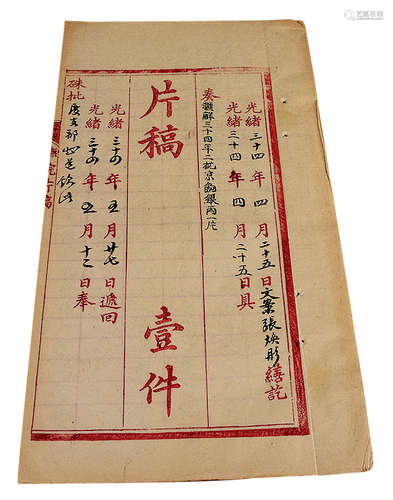 光緒三十四年四月二十五日文案張煥彤繕訖
光緒三十四年四月二十五日具
奏覆解三十四年二批京餉銀兩一片
片稿 壹件
光緒三十四年五月廿七日遞回
光緒三十四年五月十三日奉
硃批度支部知道欽此